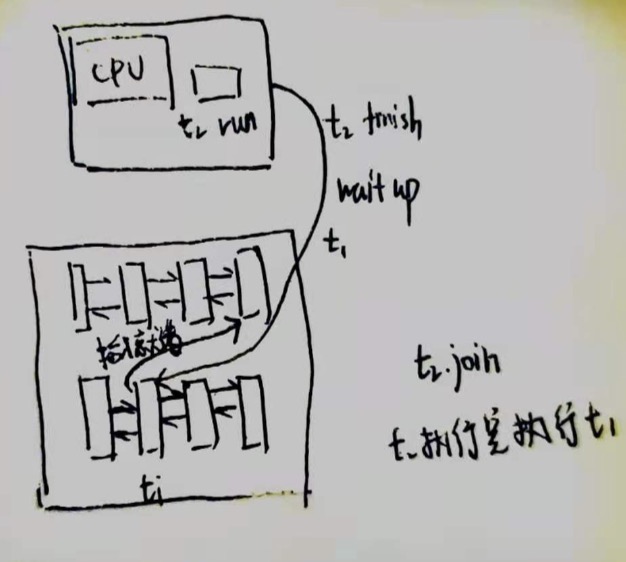 CPU
t₂ run
t₂ finish
wait up
t₁
t₁
t₂.join
t₂执行完执行t₁